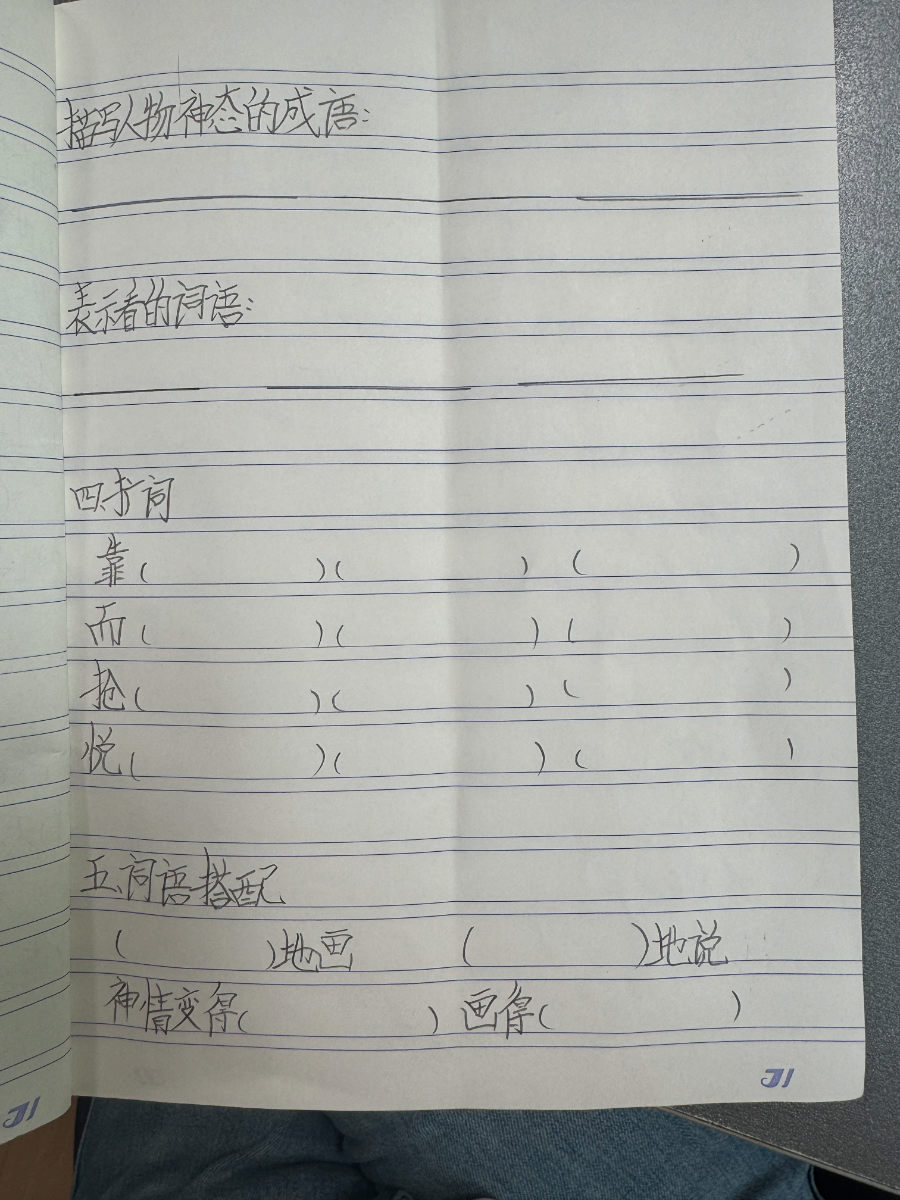 描写人物神态的成语:
表示看的词语:
四、扩词
靠(　　)(　　)(　　)
而(　　)(　　)(　　)
抢(　　)(　　)(　　)
悦(　　)(　　)(　　)
五、词语搭配
(　　)地画　(　　)地说
神情变得(　　)　画得(　　)